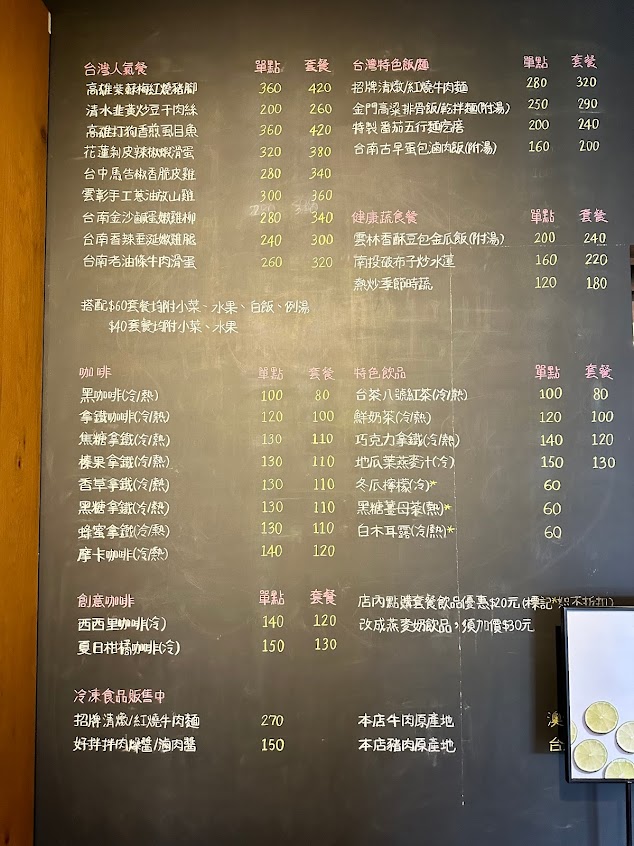 台灣人氣餐 單點 套餐
高雄紫蘇梅紅燒豬腳 360 420
清水韭黃炒豆干肉絲 200 260
高雄打狗香煎虱目魚 360 420
花蓮剝皮辣椒嫩滑蛋 320 380
台中馬告椒香脆皮雞 280 340
雲彰手工蔥油放山雞 300 360
台南金沙鹹蛋嫩雞柳 280 340
台南香辣垂涎嫩雞腿 240 300
台南老油條牛肉滑蛋 260 320
搭配$60套餐均附小菜、水果、白飯、例湯
$40套餐均附小菜、水果
台灣特色飯/麵 單點 套餐
招牌清燉/紅燒牛肉麵 280 320
金門高粱排骨飯/乾拌麵(附湯) 250 290
特製番茄五行麵疙瘩 200 240
台南古早蛋包滷肉飯(附湯) 160 200
健康蔬食餐 單點 套餐
雲林香酥豆包金瓜飯(附湯) 200 240
南投破布子炒水蓮 160 220
熱炒季節時蔬 120 180
咖啡 單點 套餐
黑咖啡(冷/熱) 100 80
拿鐵咖啡(冷/熱) 120 100
焦糖拿鐵(冷/熱) 130 110
榛果拿鐵(冷/熱) 130 110
香草拿鐵(冷/熱) 130 110
黑糖拿鐵(冷/熱) 130 110
蜂蜜拿鐵(冷/熱) 130 110
摩卡咖啡(冷/熱) 140 120
特色飲品 單點 套餐
台茶八號紅茶(冷/熱) 100 80
鮮奶茶(冷/熱) 120 100
巧克力拿鐵(冷/熱) 140 120
地瓜葉燕麥汁(冷) 150 130
冬瓜檸檬(冷)* 60
黑糖薑母茶(熱)* 60
白木耳露(冷/熱)* 60
創意咖啡 單點 套餐
西西里咖啡(冷) 140 120
夏日柑橘咖啡(冷) 150 130
店內點購套餐飲品優惠$20元(標記*恕不折扣)
改成燕麥奶飲品，須加價$30元
冷凍食品販售中
招牌清燉/紅燒牛肉麵 270
好拌拌肉燥醬/滷肉醬 150
本店牛肉原產地 澳
本店豬肉原產地 台